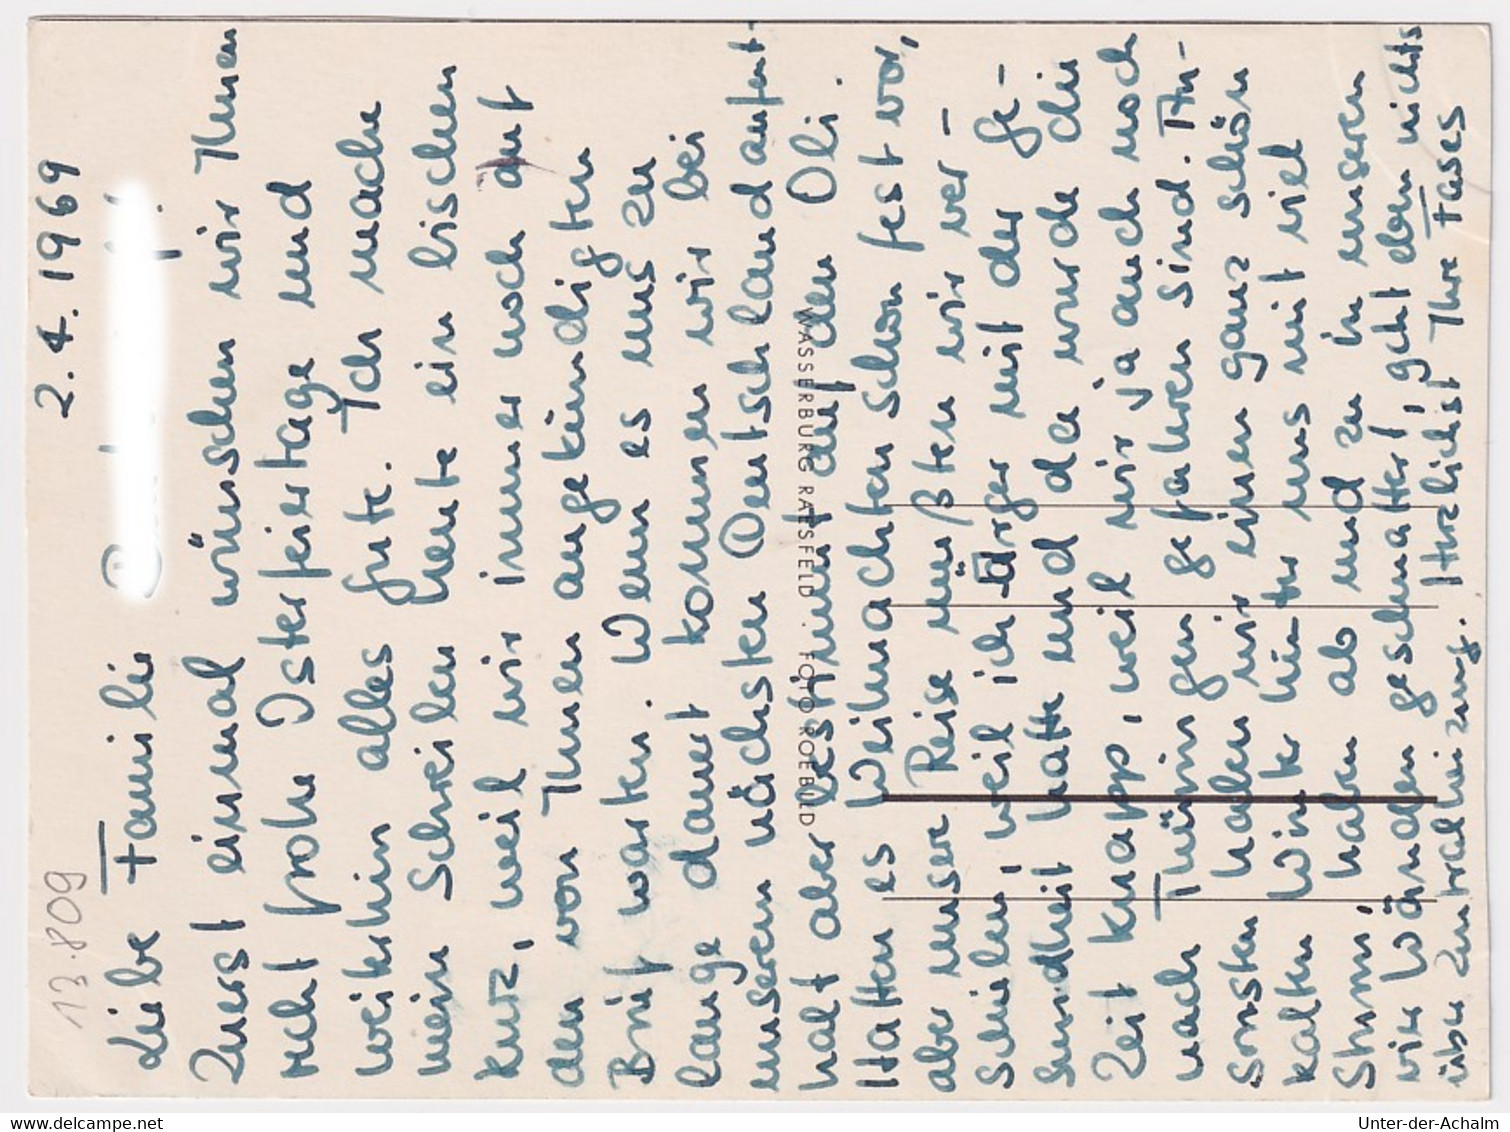 13.809
2.4.1969
Liebe Familie
Zuerst einmal wünschen wir Ihnen
recht frohe Osterfeiertage und
weiterhin alles Gute. Ich mache
mein Schreiben heute ein bischen
kurz, weil wir immer noch auf
den von Ihnen angekündigten
Brief warten. Wenn es uns zu
lange dauert kommen wir bei
unserem nächsten Deutschlandaufent-
halt aber bestimmt auf den Oli.
Hatten es Weihnachten schon fest vor,
aber unsere Reise mußten wir ver-
schieben, weil ich Ärger mit der Ge-
sundheit hatte und da wurde die
Zeit knapp, weil wir ja auch noch
nach Thüringen gefahren sind. An-
sonsten haben wir einen ganz schön
kalten Winter hinter uns mit viel
Sturm, haben ab und zu in unseren
vier Wänden geschnattert, geht eben nichts
über Zentralheizung. Herzlichst Ihre Fases
WASSERBURG RAESFELD · FOTO ROEBILD
Unter-der-Achalm